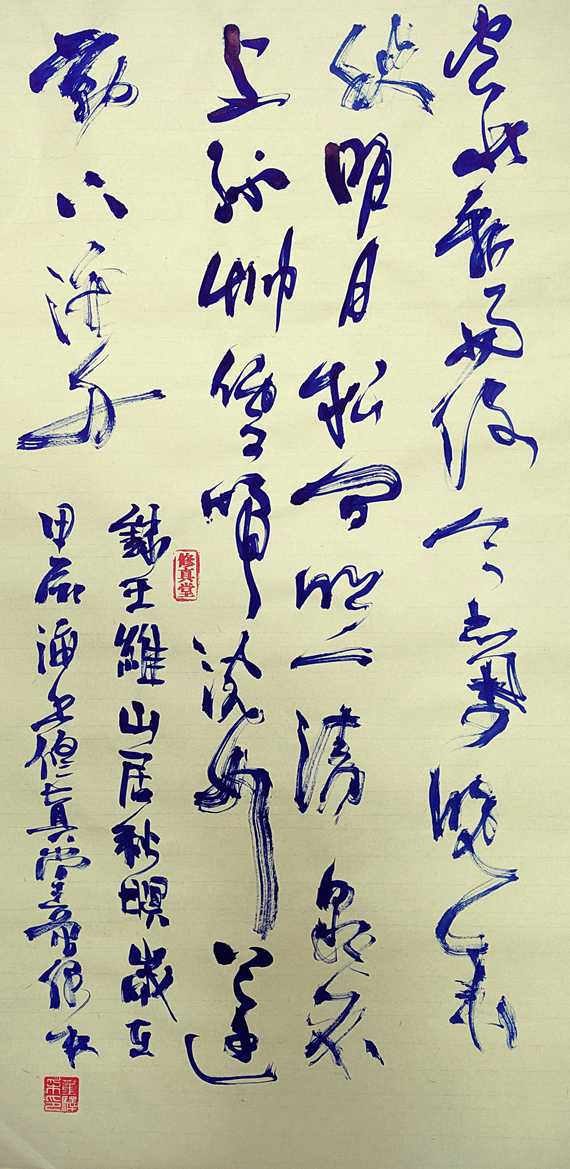 空山新雨後天氣晚来
秋明月松间照清泉石
上流竹喧歸浣女蓮
動下渔舟
修真堂
錄王維山居秋暝歲在
甲辰修真堂